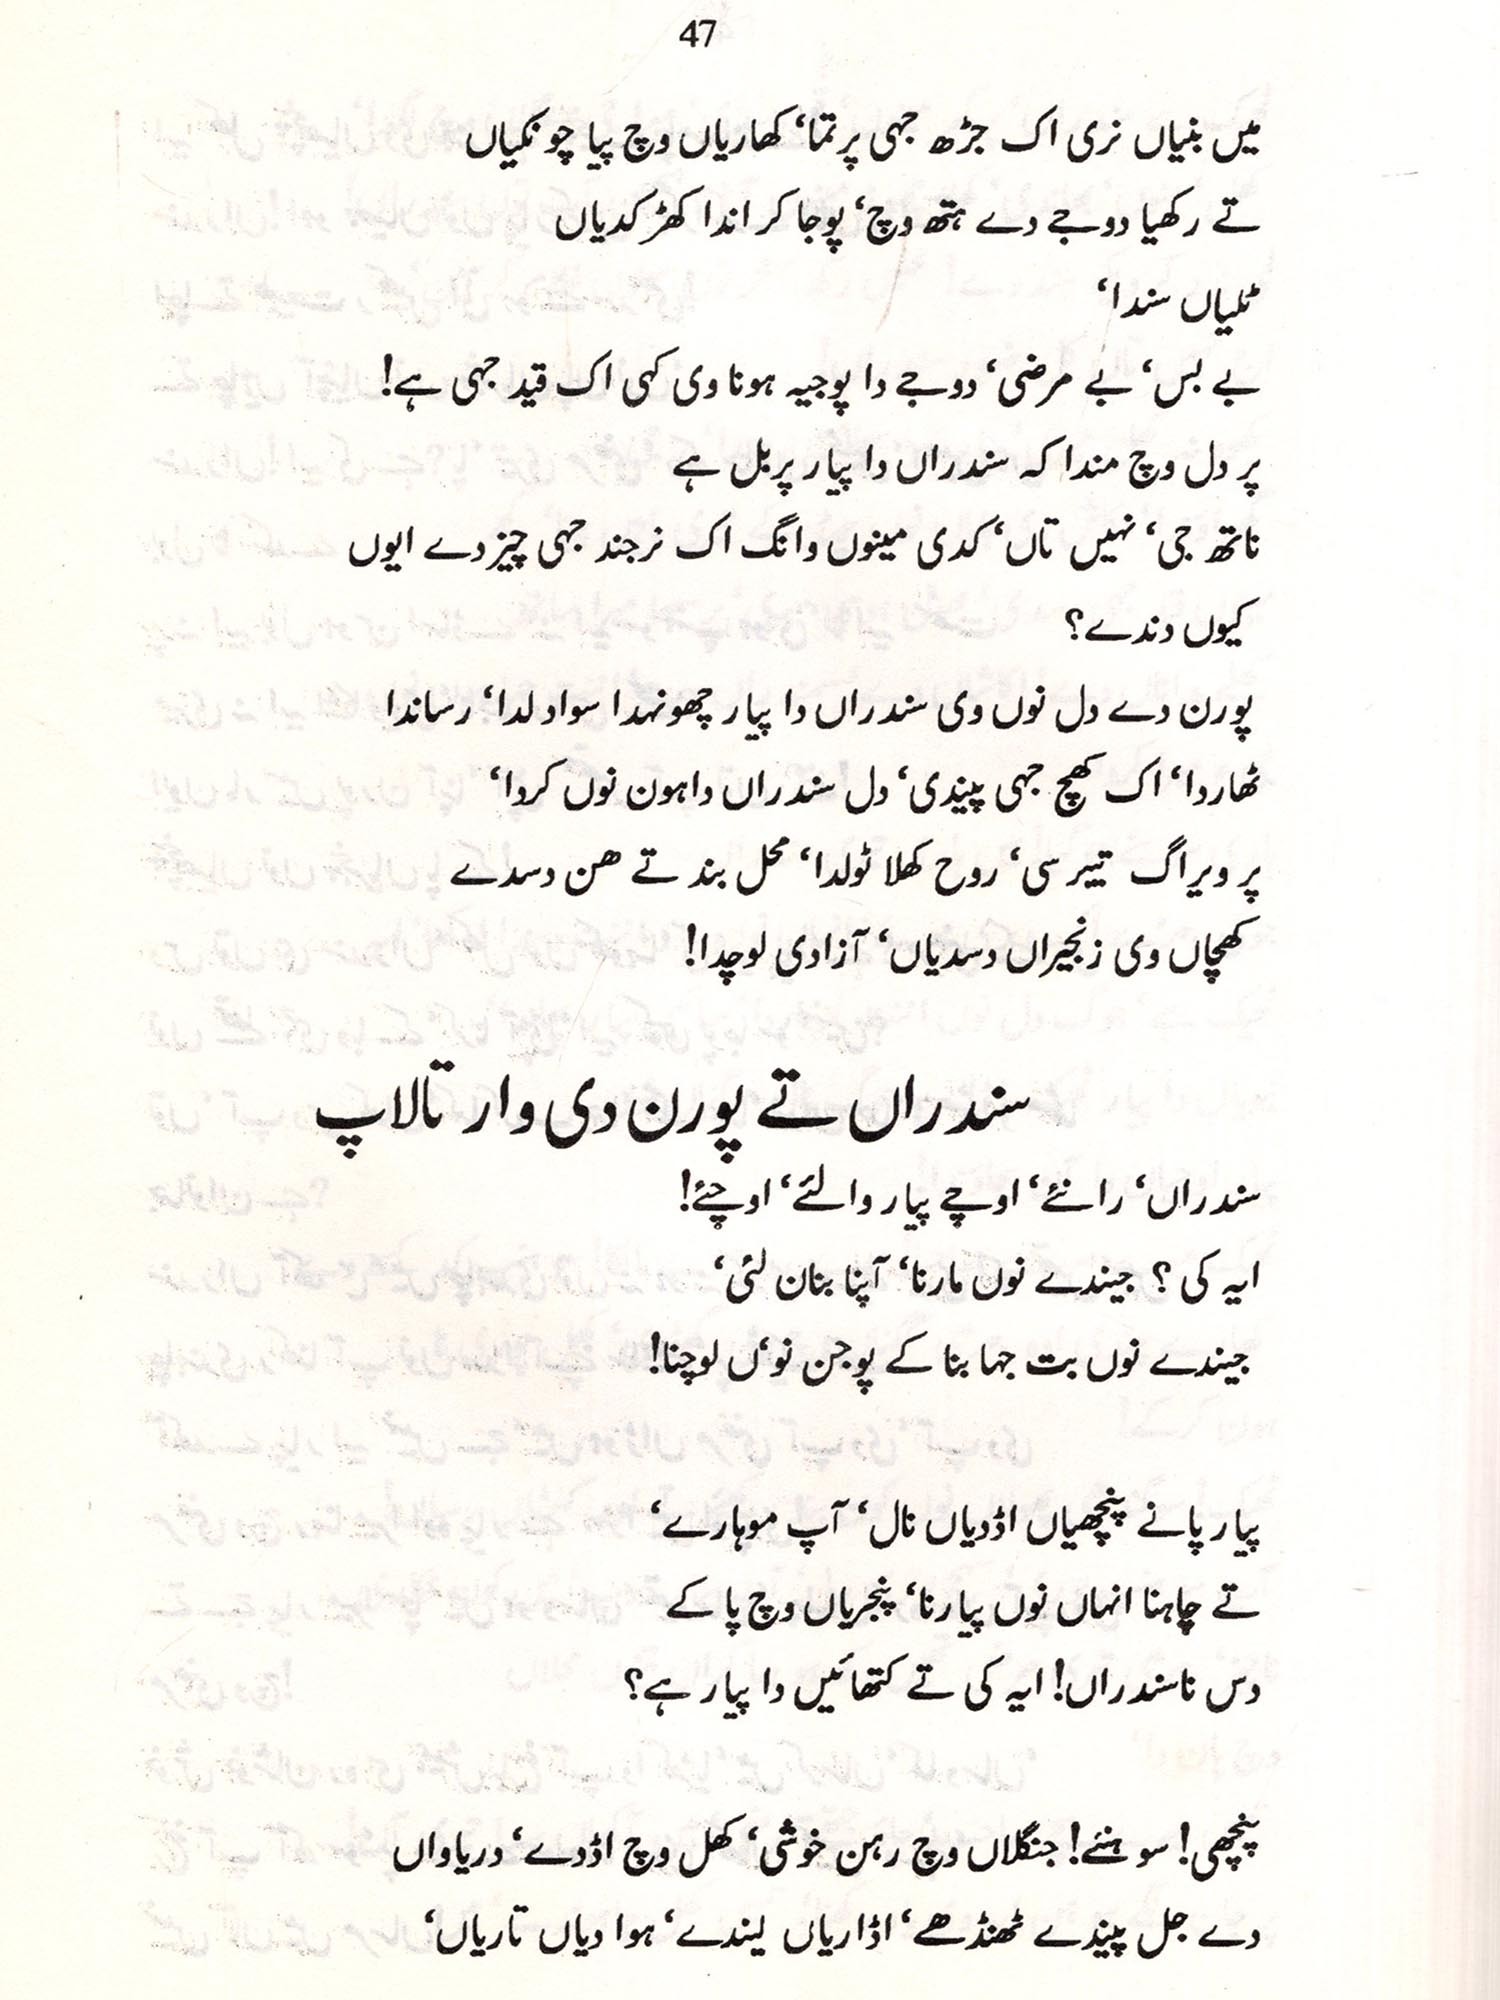 47
میں بنیاں نری اک جڑھ جہی پرتما‘ کھاریاں وچ پیا چونکیاں
تے رکھیا دوجے دے ہتھ وچ‘ پوجا کر اندا کھڑکدیاں
ٹلیاں سندا‘
بے بس‘ بے مرضی‘ دوجے دا پوجیہ ہونا وی کہی اک قید جہی ہے!
پر دل وچ مندا کہ سندراں دا پیار پربل ہے
ناتھ جی‘ نہیں تاں‘ کدی مینوں وانگ اک نرجند جہی چیز دے ایوں
کیوں دندے؟
پورن دے دل نوں وی سندراں دا پیار چھونہدا سواد لدا‘ رساندا
ٹھاردا‘ اک کھچ جہی پیندی‘ دل سندراں دا ہون نوں کردا‘
پر ویراگ تیبر سی‘ روح کھلا ٹولدا‘ محل بند تے ھن دسدے
کھچاں وی زنجیراں دسدیاں‘ آزادی لوچدا!
سندراں تے پورن دی وار تالاپ
سندراں‘ رانئے‘ اوچے پیار والئے‘ اوچئے!
ایہ کی ؟ جیندے نوں مارنا‘ آپنا بنان لئی‘
جیندے نوں بت جہا بنا کے پوجن نو‘ں لوچنا!
پیار پانے پنچھیاں اڈدیاں نال‘ آپ موہارے‘
تے چاہنا انہاں نوں پیارنا‘ پنجریاں وچ پا کے
دس نا سندراں! ایہ کی تے کتھائیں دا پیار ہے؟
پنچھی! سوہنئے! جنگلاں وچ رہن خوشی‘ کھل وچ اڈدے‘ دریاواں
دے جل پیندے ٹھنڈھے‘ اڈاریاں لیندے‘ ہوا دیاں تاریاں‘